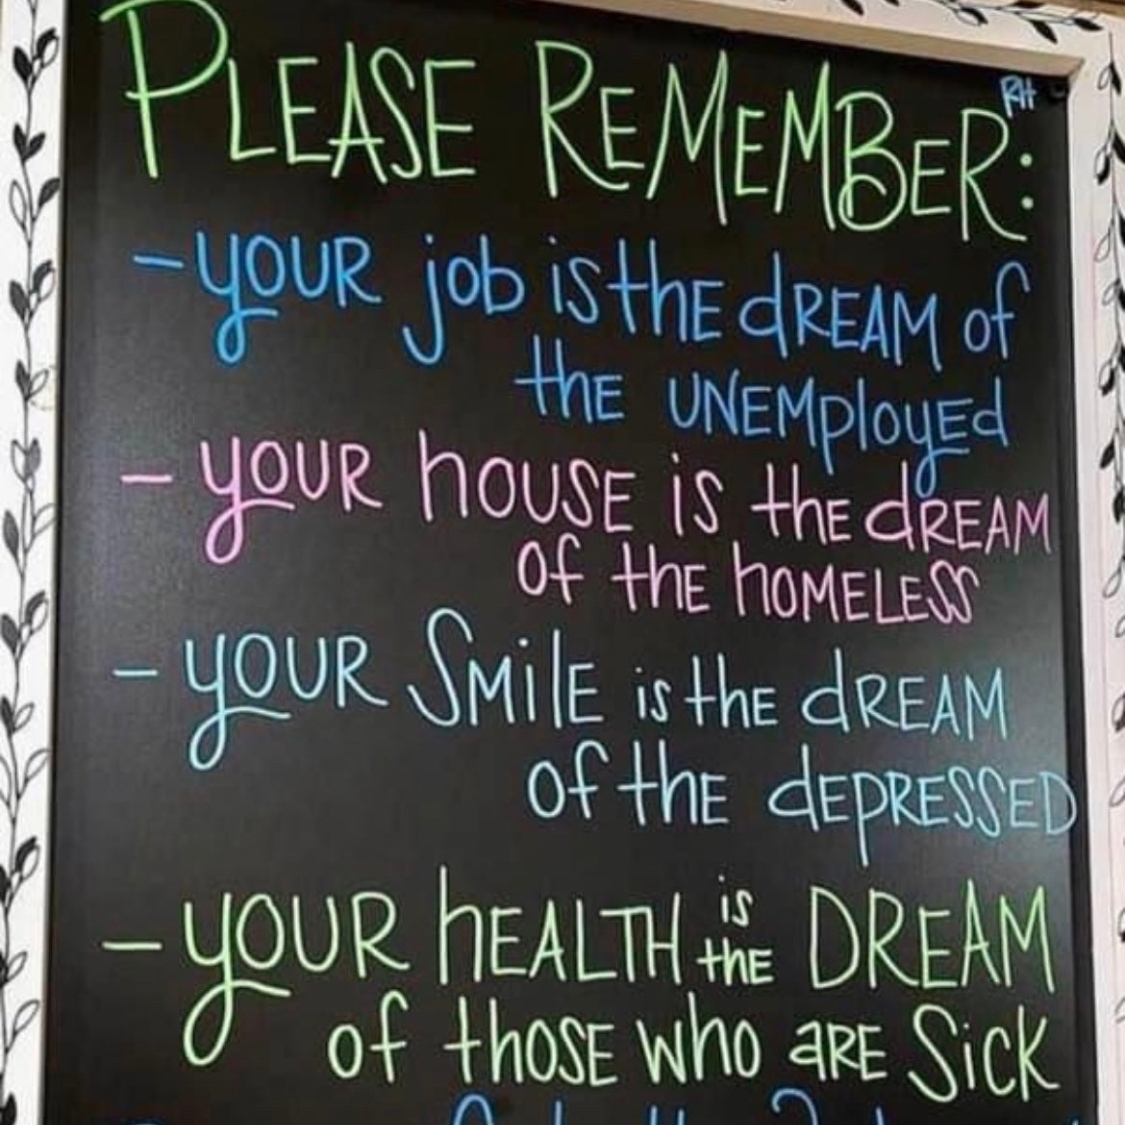 PLEASE REMEMBER:
RH
- YOUR job is the dREAM of
the UNEMployed
- YOUR house is the dREAM
of the hOMELESS
- YOUR SMilE is the dREAM
of the dEPRESSED
- YOUR hEALTH is the DREAM
of those who aRE Sick